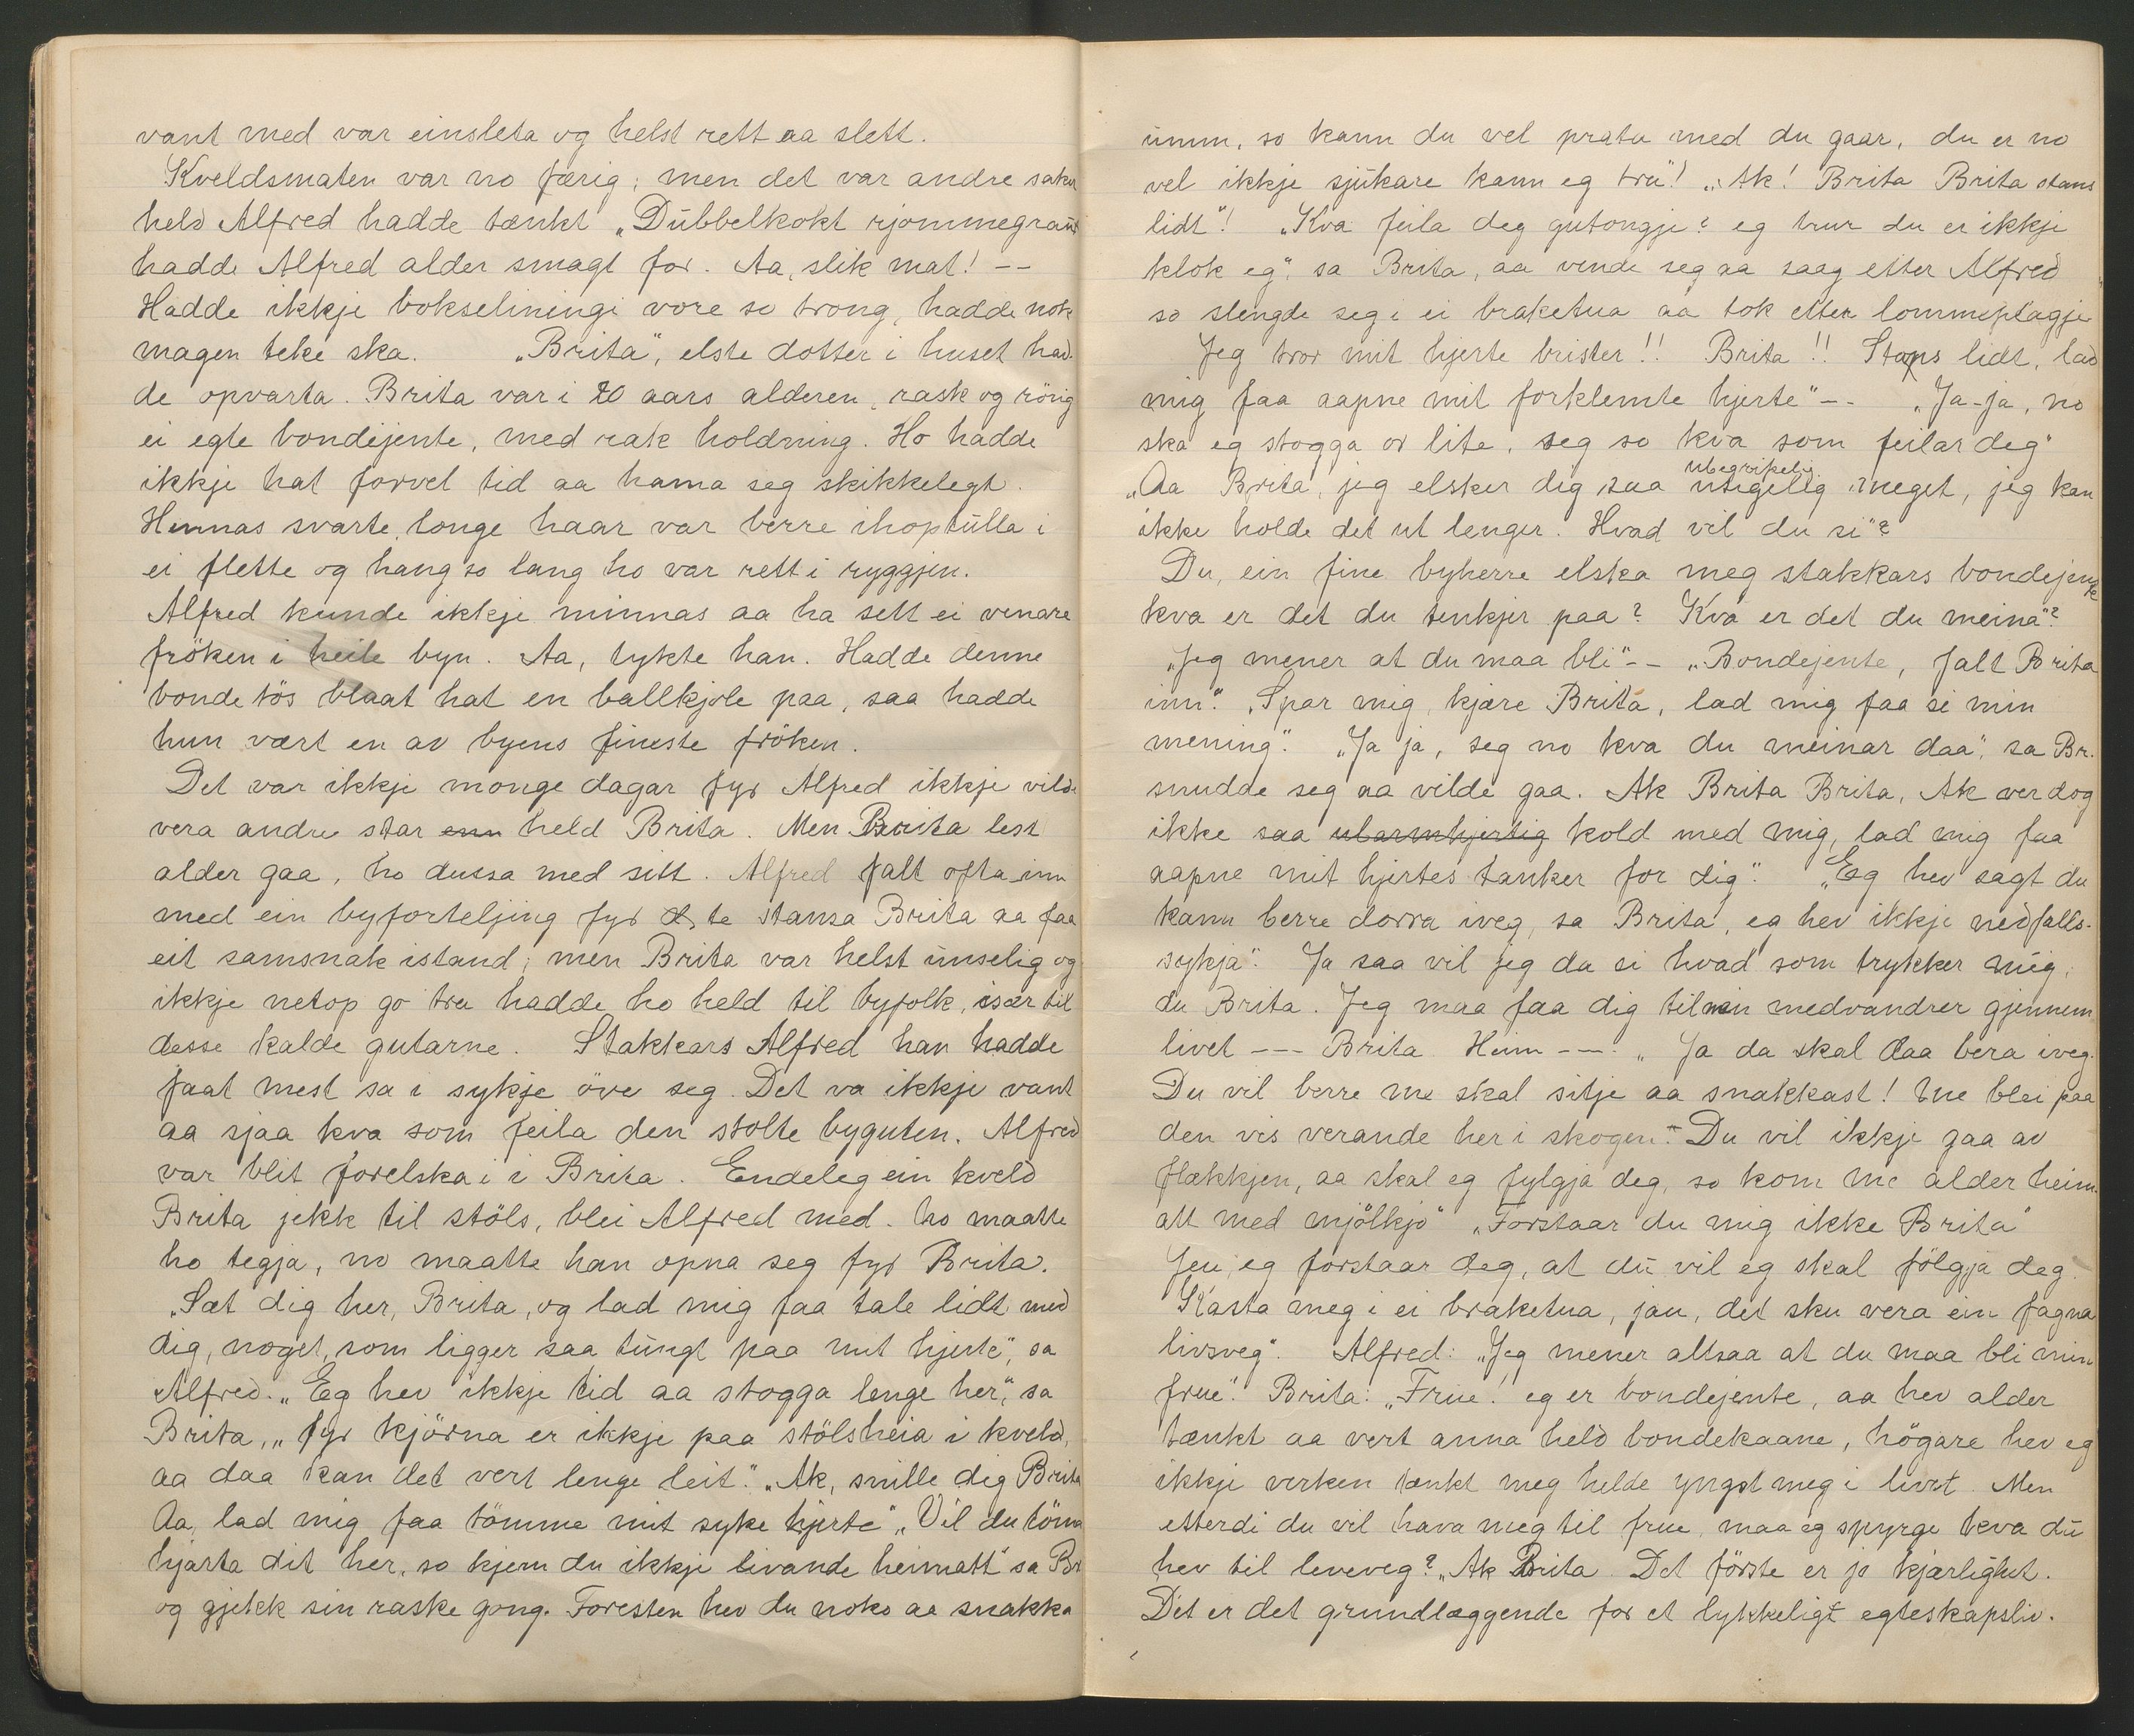 vant med var einsleta og helst rett aa slett.
Kveldsmaten var no færig; men det var andre saker
held Alfred hadde tænkt „Dubbelkokt rjommegraut
hadde Alfred alder smagt for. Aa, slik mat! --
Hadde ikkje bokseliningi vore so trong, hadde nok
magen teke ska. „Brita", elste dotter i huset had-
de opvarta. Brita var i 20 aars alderen, rask og rörig
ei egte bondejente, med rak holdning. Ho hadde
ikkje hat forvel tid aa hama seg skikkelegt.
Hennas svarte, longe haar var berre ihoptulla i
ei flette og hang so lang ho var rett i ryggjen.
Alfred kunde ikkje minnas aa ha sett ei venare
fröken i heile byn. Aa, tykte han. Hadde denne
bondetös blaat hat en ballkjole paa, saa hadde
hun vært en av byens fineste fröken.
Det var ikkje monge dagar fyr Alfred ikkje vilde
vera andre star enn held Brita. Men Brita lest
alder gaa, ho dussa med sitt. Alfred falt ofta inn
med ein byforteljing fyr te stansa Brita aa faa
eit samsnak istand; men Brita var helst unselig og
ikkje netop go tru hadde ho held til byfolk, især til
desse kalde gutarne. Stakkars Alfred han hadde
faat mest sa i sykje öve seg. Det va ikkje vant
aa sjaa kva som feila den stolte byguten. Alfred
var blit forelska i i Brita. Endeleg ein kveld
Brita jekk til stöls, blei Alfred med. ho maatte
ho tegja, no maatte han opna seg fyr Brita.
„Sæt dig her, Brita, og lad mig faa tale lidt med
dig, noget, som ligger saa tungt paa mit hjerte", sa
Alfred. „Eg hev ikkje tid aa stogga lenge her", sa
Brita, „fyr kjörna er ikkje paa stölsheia i kveld,
aa daa kan det vert lenge leit." „Ak, snille dig Brita
Aa, lad mig faa tömme mit syke hjerte" „Vil du töma
hjarta dit her, so kjem du ikkje livande heimatt" sa Br
og gjekk sin raske gong. Foresten hev du noko aa snakka
umm, so kann du vel prata med du gaar, du er no
vel ikkje sjukare kann eg tru"! „Ak! Brita Brita stans
lidt"! „Kva feila deg gutongje? eg trur du er ikkje
klok eg", sa Brita, aa vende seg aa saag etter Alfred
so slengde seg i ei braketua aa tok etter lommeplagje „
Jeg tror mit hjerte brister!! Brita!! Stans lidt, lad
mig faa aapne mit forklemte hjerte" -- „Ja-ja, no
ska eg stogga or lite, seg so kva som feilar deg"
ubegripelig
„Aa Brita, jeg elsker dig saa usigelig meget, jeg kan
ikke holde det ut lenger. Hvad vil du si"?
Du, ein fine byherre elska meg stakkars bondejente
kva er det du tenkjer paa? Kva er det du meina"?
„Jeg mener at du maa bli" -- „Bondejente, falt Brita
inn." „Spar mig, kjære Brita, lad mig faa si min
mening". „Ja ja, seg no kva du meinar daa", sa Br.
snudde seg aa vilde gaa. Ak Brita Brita, Ak ver dog
ikke saa ubarmhjertig kold med mig, lad mig faa
aapne mit hjertes tanker for dig". „Eg hev sagt du
kann berre dorra iveg, sa Brita, eg hev ikkje nedfalls-
sykja". Ja saa vil jeg da si hvad som trykker mig,
du Brita. Jeg maa faa dig til min medvandrer gjennem
livet --- Brita Heim ---. „Ja da skal daa bera iveg.
Du vil berre me skal sitje aa snakkast! Me blei paa
den vis verande her i skogen. Du vil ikkje gaa av
flækkjen, aa skal eg fylgja deg, so kom me alder heim
att med mjölkjo" „Forstaar du mig ikke Brita"
Jeu, eg forstaar deg, at du vil eg skal fölgja deg.
Kasta meg i ei braketua, jau, det sku vera ein fagna
livsveg". Alfred: „Jeg mener altsaa at du maa bli min
frue". Brita: „Frue! eg er bondejente, aa hev alder
tænkt aa vert anna held bondekaane, högare hev eg
ikkje verken tænkt meg helde yngst meg i livet. Men
etterdi du vil hava meg til frue, maa eg spyrge kva du
hev til leveveg? „Ak Brita. Det förste er jo kjærlighet.
Det er det grundlæggende for et lykkeligt egteskapsliv.